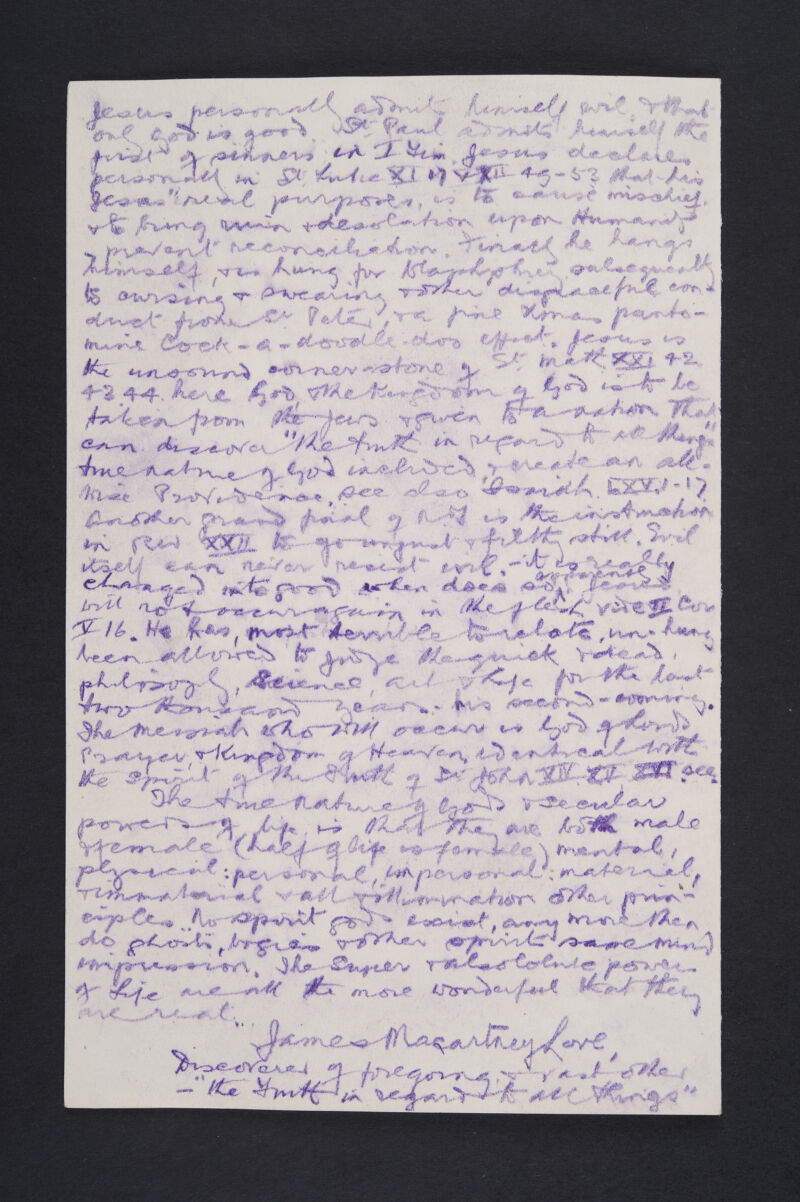 Jesus personally admits himself evil, & that
only God is good. St Paul admits himself the
first of sinners in I Tim. Jesus declares
personally in St Luke XI 17 & XII 49-53 that his
Jesus' real purposes, is to cause mischief,
& to bring ruin & desolation upon Humanity
& prevent reconciliation. Finally he hangs
himself, & is hung for blasphphmy subsequently
to cursing & swearing & other disgraceful con-
duct from St Peter, & a fine Xmas panto-
mime Cock-a-doodle-doo effect. Jesus is
the unsound corner-stone of St. Math XXI 42
43 44. here God, & the Kingdom of God is to be
taken from the Jews & given to a nation that
can discover "the truth in regard to all things"
true nature of God included, & create an all-
wise Providence, see also Isaiah LXV.1-17
Another grand final of is the instruction
in Rev XXII to go unjust & filth still. Evil
itself can never resist evil. - it is really
changed into good when does so. Jesus
will not occur again in the flesh vide II Cor
V 16. He has, most terrible to relate, un-hung
been allowed to judge the quick & dead,
philosophy, Science, art & life for the last
two thousand years. his second-coming.
The Messiah who will occur is God of Lord's
Prayer, & Kingdom of Heaven, identical with
the Spirit of the Truth of St John XIV XV XVI. see.
The true nature of God & secular
powers of life is that they are both male
& female (half of life is female) mental,
physical: personal, impersonal: material,
& immaterial & all & other prin-
ciples. No spirit gods exist, any more then
do ghosts, bogies & other spirit save mind
impression. The Super & absolute powers
of Life are all the more wonderful that they
are real.
James Macartney Love,
Discoverer of foregoing, & vast other
- "the Truth in regard to all things"